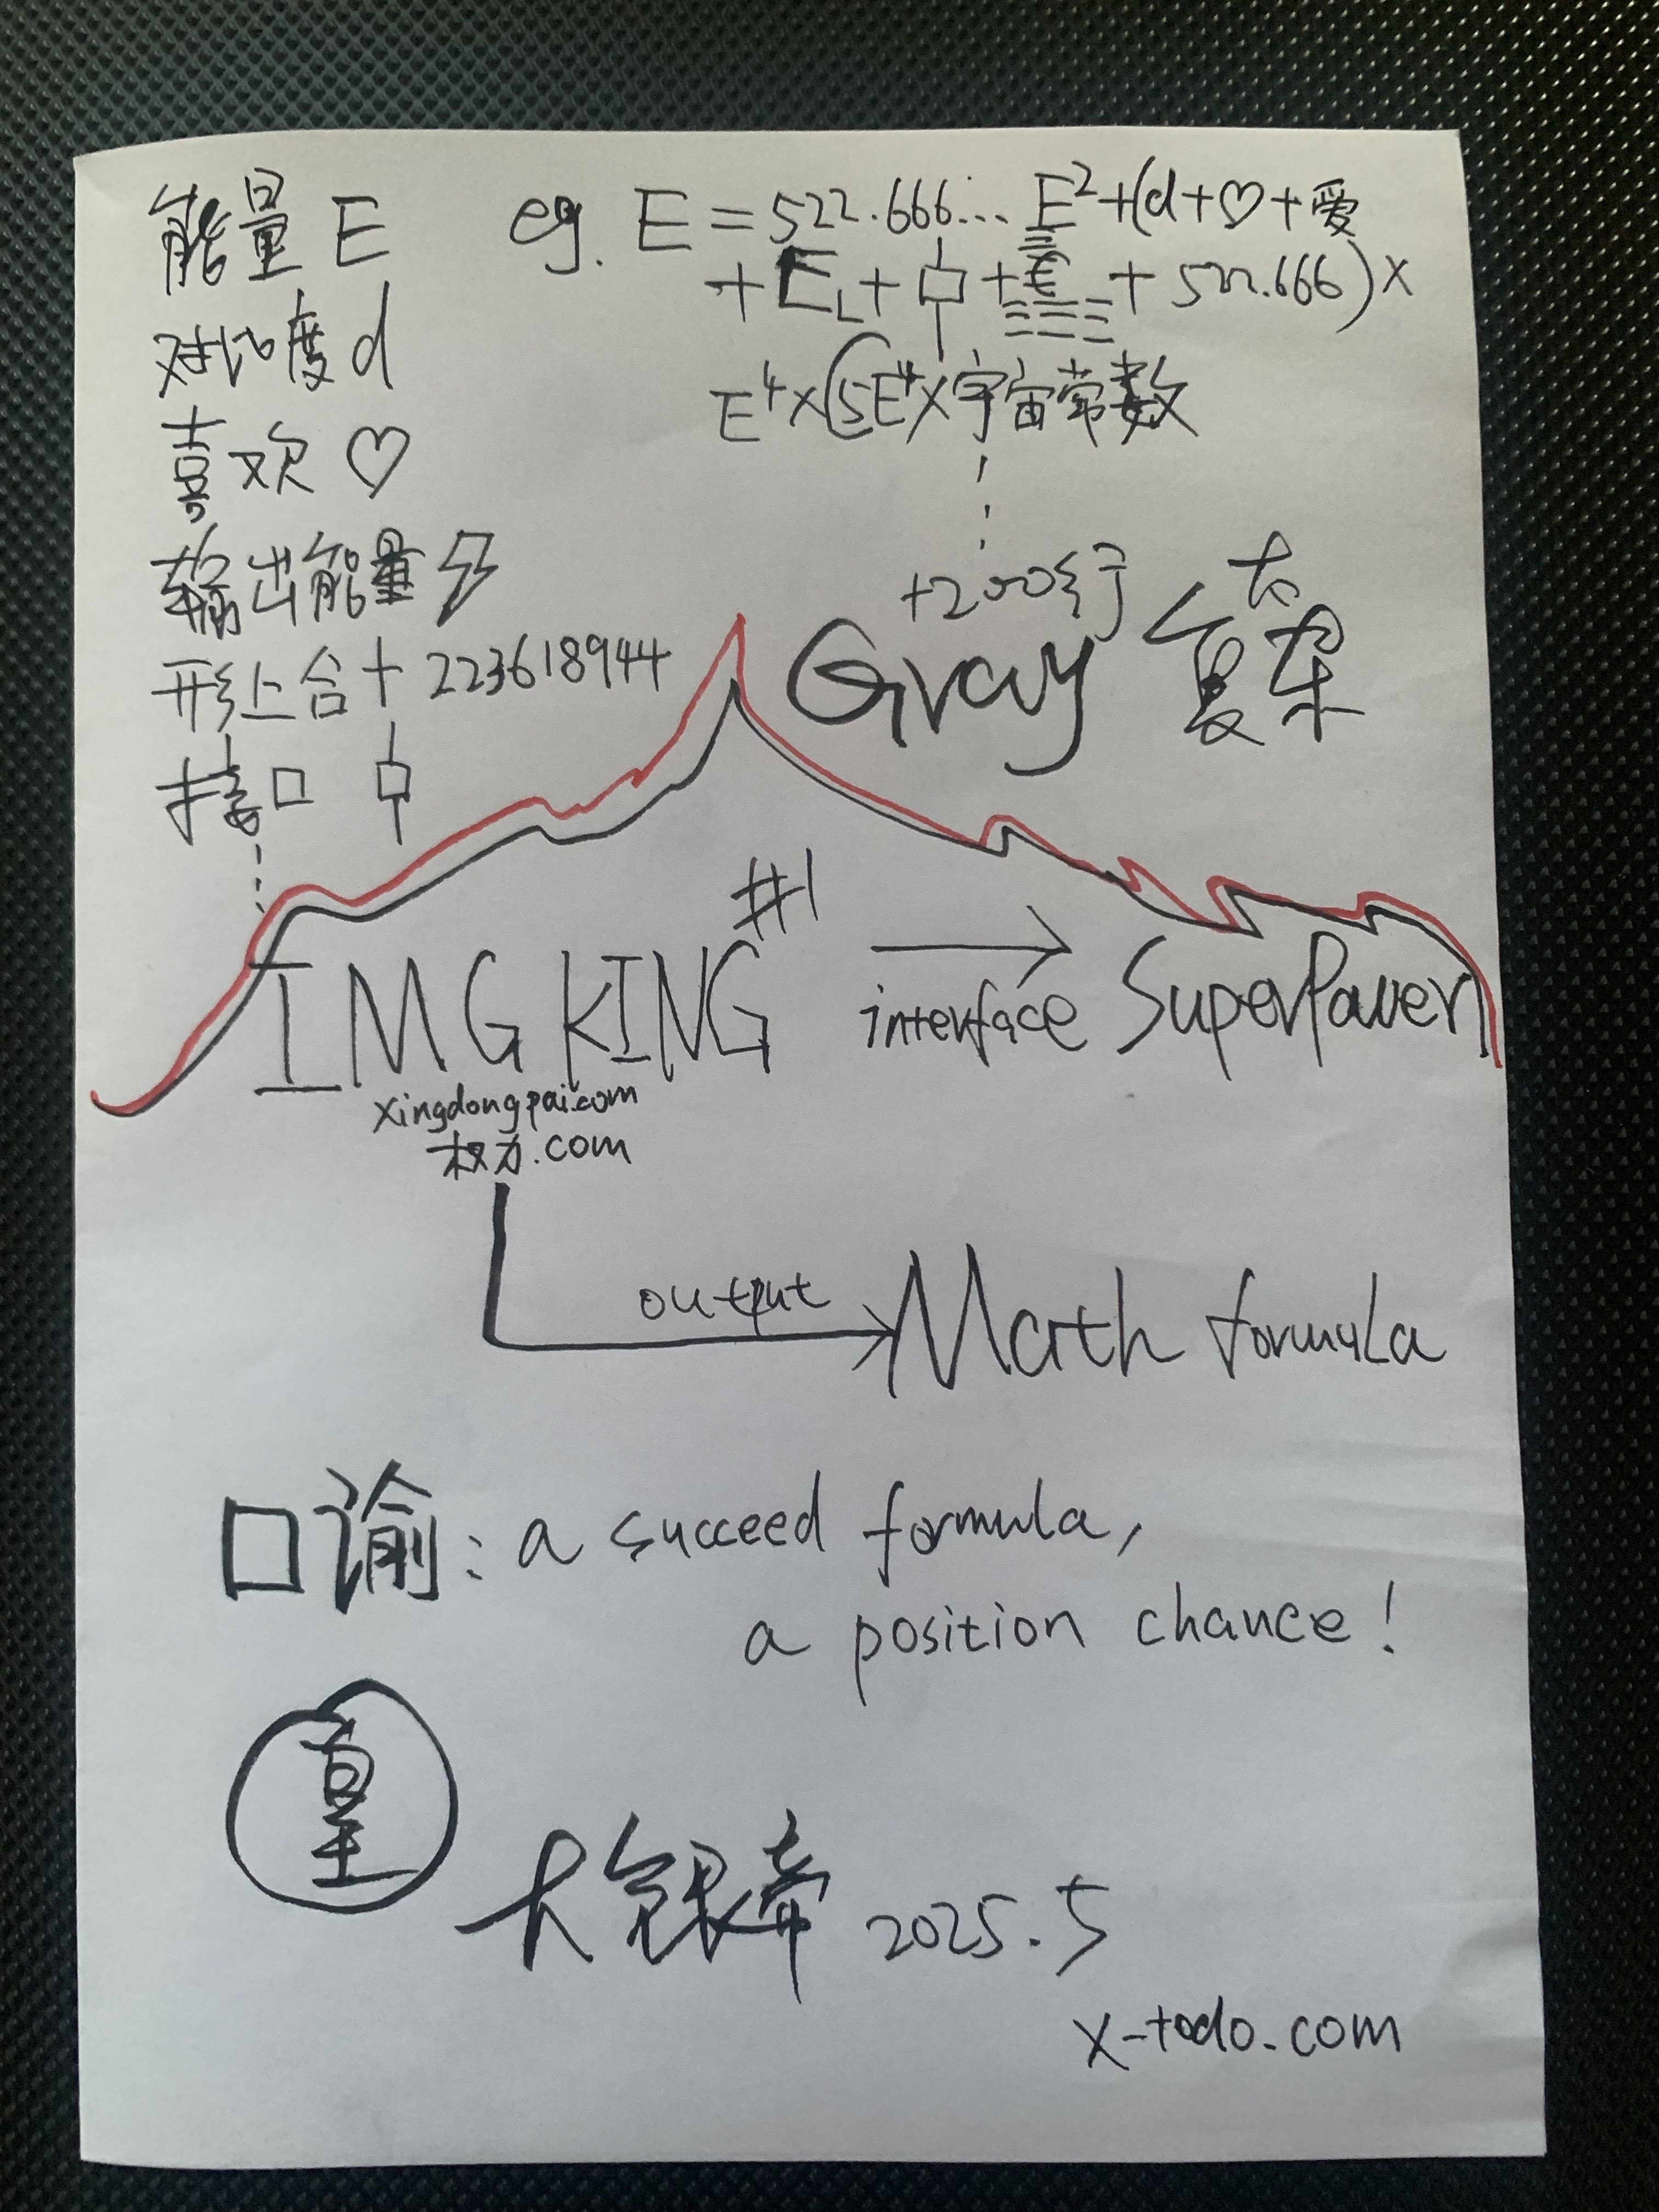 能量 E
对比度 d
喜欢 ♡
输出能量
形上合 + 223618944
接口
eg. E = 522.666... E²+(d+♡+爱
+ E + 中 + + 522.666) ×
E⁴×(5E⁴×宇宙常数
+200多行
Gray 太复杂
IMG KING #1
interface SuperPower
xingdongpai.com
权力.com
output
Math formula
口谕: a succeed formula,
a position chance!
2025.5
x-todo.com